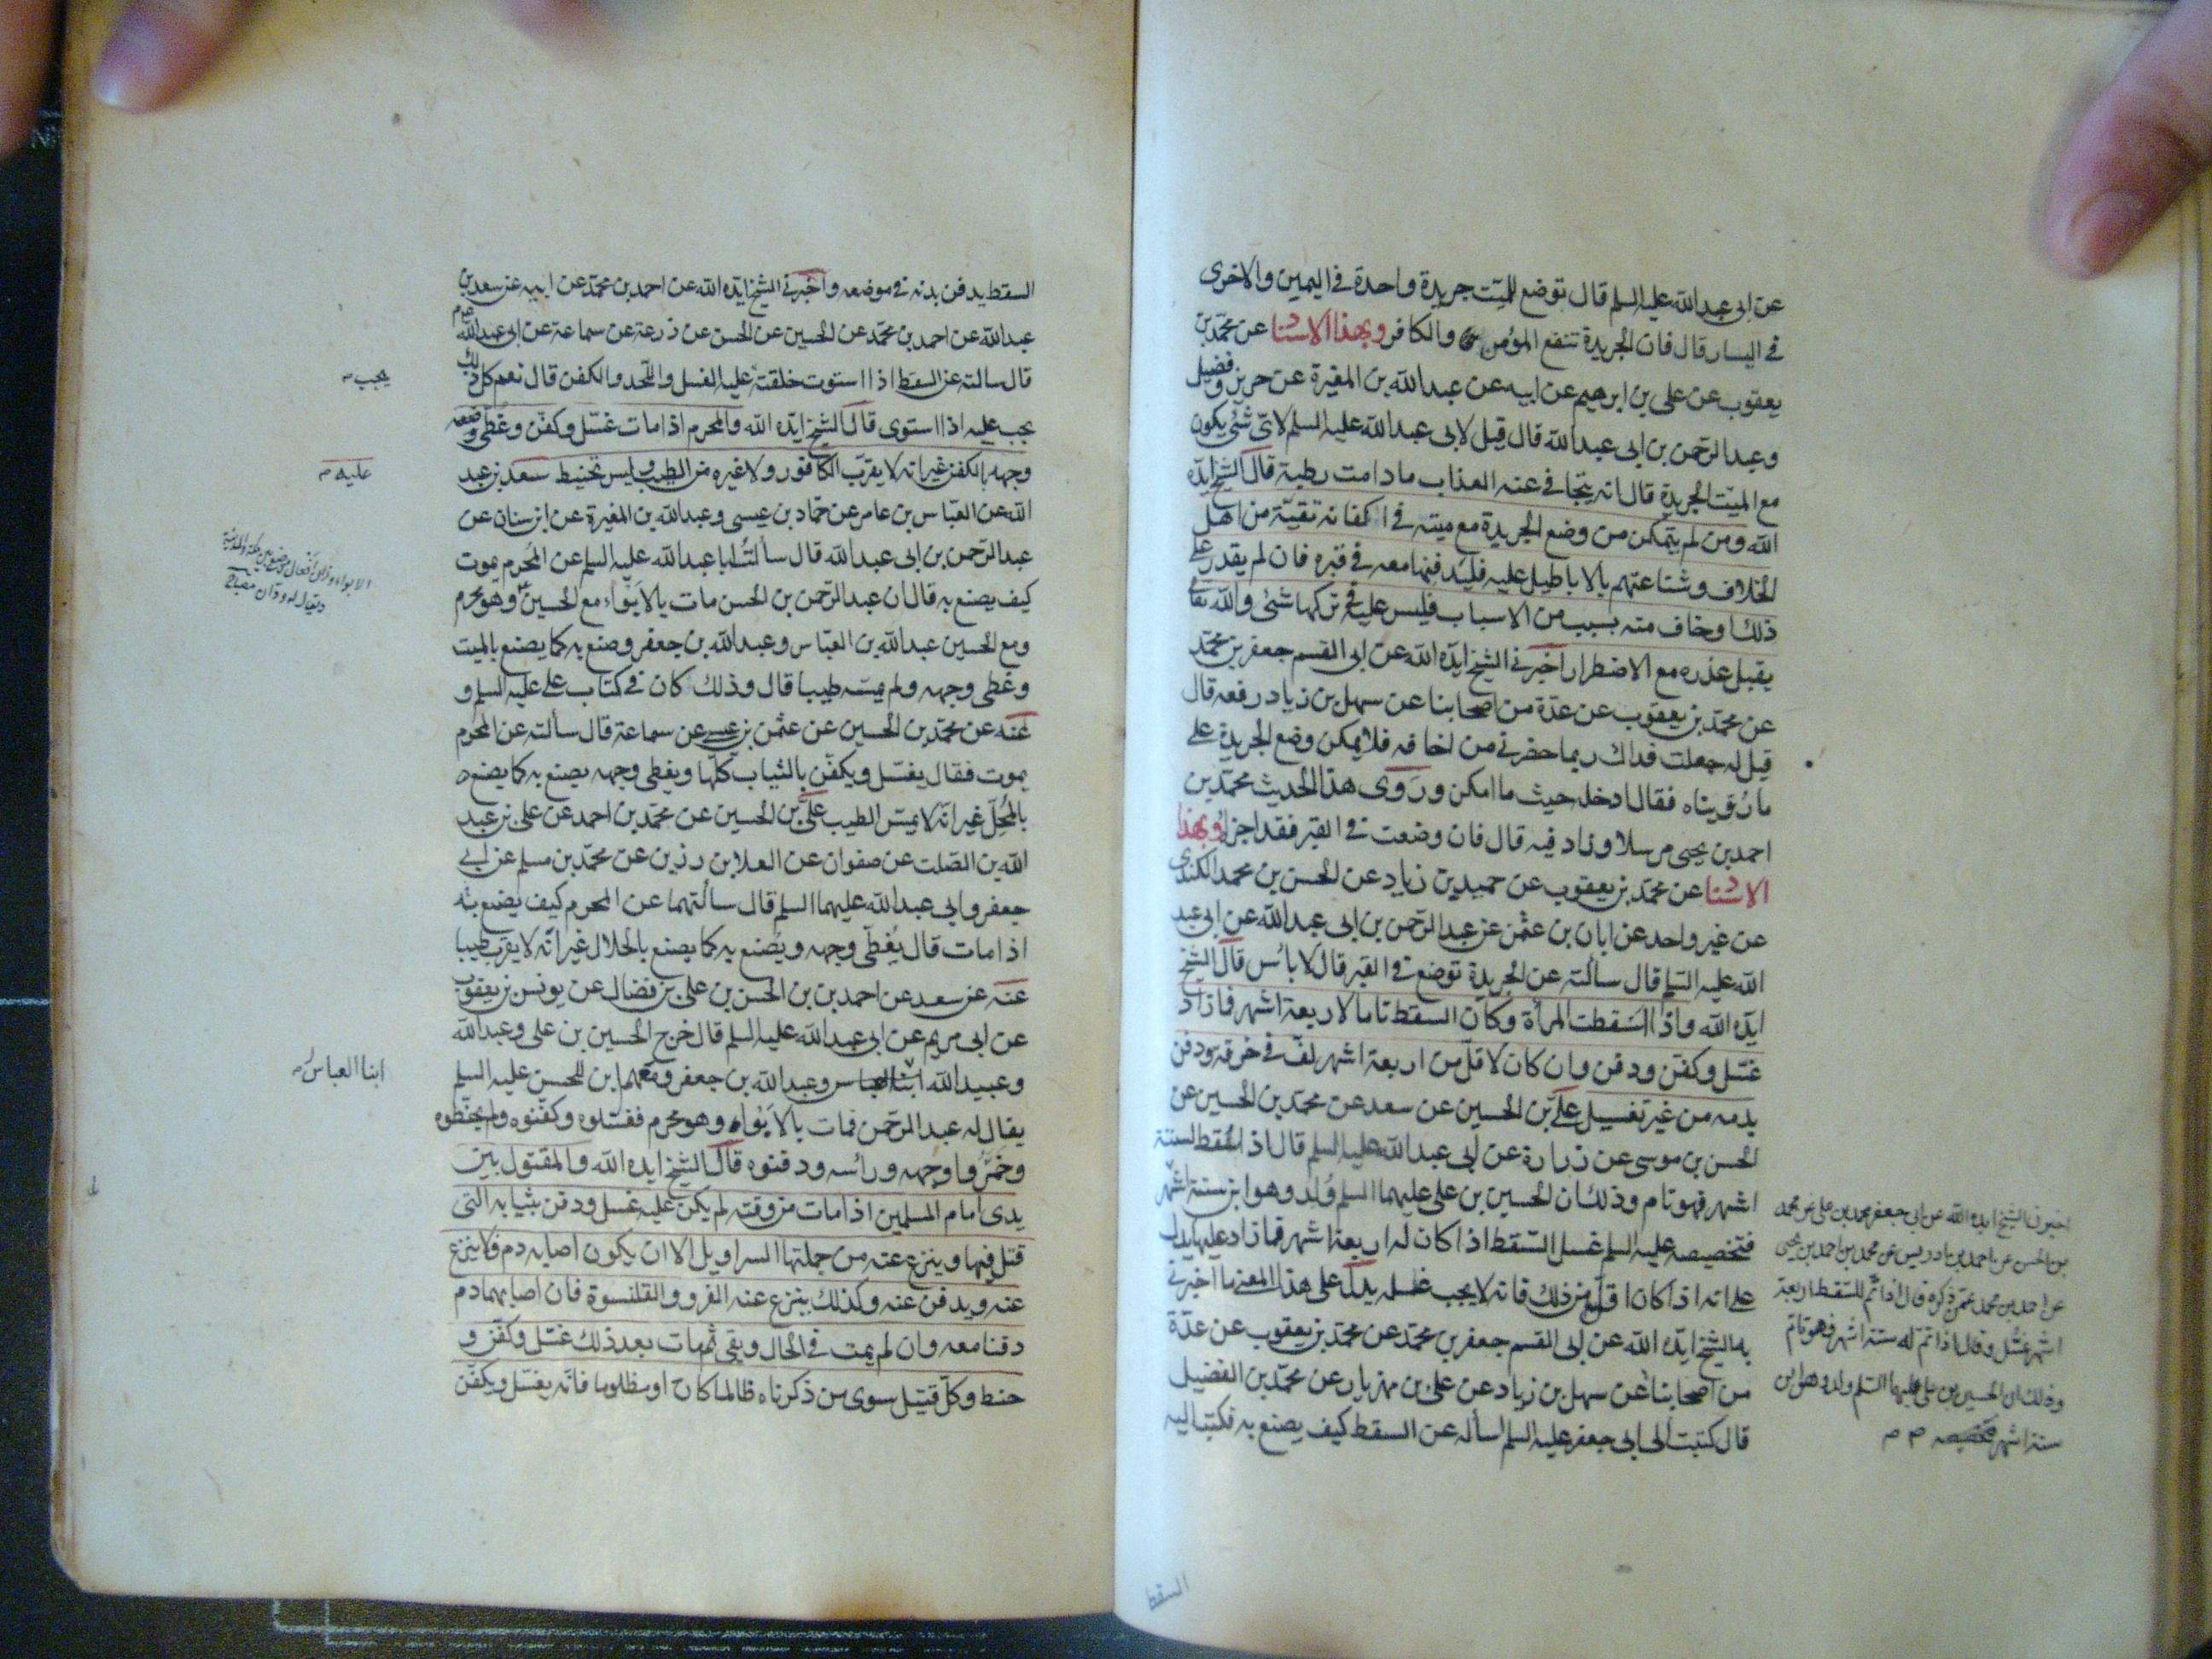 عن ابى عبدالله عليه السلم قال توضع للميّت جريدة واحدة فى اليمين والاخرى
فى اليسار قال فان الجريدة تنفع المؤمن والكافر وبهذا الاسنا د عن محمّد بن
يعقوب عن على بن ابرهيم عن ابيه عن عبدالله بن المغيرة عن حريز وفضيل
وعبدالرّحمن بن ابى عبدالله قال قيل لابى عبدالله عليه السلم لاىّ شئ يكون
مع الميّت الجريدة قال انه يتجافى عنه العذاب مادامت رطبة قال الشيخ ايّده
الله ومن لم يتمكن من وضع الجريدة مع ميته فى اكفانه تقيّة من اهل
الخلاف وشناعتهم بالاباطيل عليه فليدفنها معه فى قبره فان لم يقدر على
ذلك او خاف منه بسبب من الاسباب فليس عليه فى تركها شئ والله تعالى
يقبل عذره مع الاضطرار اخبرنى الشيخ ايّده الله عن ابى القسم جعفر بن محمّد
عن محمّد بن يعقوب عن عدّة من اصحابنا عن سهل بن زياد رفعه قال
قيل له جعلت فداك ربما حضرنى من اخافه فلا يمكن وضع الجريدة على
ما رُوّيناه فقال ادخلها حيث ما امكن ورَوى هذا الحديث محمّد بن
احمد بن يحيى مرسلا وزاد فيه قال فان وضعت فى القبر فقد اجزأ وبهذا
الاسنا د عن محمّد بن يعقوب عن حميد بن زياد عن الحسن بن محمد الكندى
عن غير واحد عن ابان بن عثمن عن عبدالرّحمن بن ابى عبدالله عن ابى عبد
الله عليه السّلم قال سألته عن الجريدة توضع فى القبر قال لا بأس قال الشيخ
ايّده الله واذا اسَقطت المرأة وكان السقط تاما لاربعة اشهر فما زاد
غسّل وكفّن ودفن وان كان لاقلّ من اربعة اشهر لفّ فى خرقة ودفن
بدمه من غير تغسيل علىّ بن الحسين عن سعد عن محمّد بن الحسين عن
الحسن بن موسى عن زرارة عن ابى عبدالله عليه السلم قال اذا سُقط لستة
اشهر فهو تام وذلك ان الحسين بن على عليهما السلم وُلد وهو ابن ستة اشهر
فتخصيصه عليه السلم غسل السّقط اذا كان له اربعة اشهر فما زاد عليها يدل
على انه اذا كان اقلّ من ذلك فانه لا يجب غسله يدلّ على هذا المعنى ما اخبرنى
به الشيخ ايّده الله عن ابى القسم جعفر بن محمّد عن محمّد بن يعقوب عن عدّة
من اصحابنا عن سهل بن زياد عن على بن مهزيار عن محمّد بن الفضيل
قال كتبت الى ابى جعفر عليه السلم اسأله عن السقط كيف يصنع به فكتب اليه
اخبرنى الشيخ ايده الله عن ابى جعفر محمد بن على عن محمد
بن الحسن عن احمد بن ادريس عن محمد بن احمد بن يحيى
عن احمد بن محمد عمّن ذكره قال اذا تمّ للسّقط اربعة
اشهر غسّل وقال اذا تمّ له ستة اشهر فهو تام
وذلك ان الحسين بن على عليهما السّلم ولد وهو ابن
ستة اشهر فتخصيصه
السقط
السقط يدفن بدنه فى موضعه واخبرنى الشيخ ايّده الله عن احمد بن محمّد عن ابيه عن سعد بن
عبدالله عن احمد بن محمّد عن الحسين عن الحسن عن زرعة عن سماعة عن ابى عبدالله
قال سالته عن السقط اذا استوت خلقته عليه الغسل واللّحد والكفن قال نعم كل ذلك
يجب عليه اذا استوى قال الشيخ ايّده الله والمحرم اذا مات غسّل وكفّن وغُطّى وضعه
وجهه بالكفن غير انه لا يقرب الكافور ولا غيره من الطيب وليس تحنيط سعد بن عبد
الله عن العبّاس بن عامر عن حمّاد بن عيسى وعبدالله بن المغيرة عن ابن سنان عن
عبدالرّحمن بن ابى عبدالله قال سألت ابا عبدالله عليه السلم عن المُحرم يموت
كيف يصنع به قال ان عبدالرّحمن بن الحسن مات بالابَواء مع الحسين وهو محرم
ومع الحسين عبدالله بن العبّاس وعبدالله بن جعفر وصنع به كما يصنع بالميت
وغطى وجهه ولم يمسّه طيبا قال وذلك كان فى كتاب على عليه السلم و
عنه عن محمّد بن الحسين عن عثمن بن عيسى عن سماعة قال سألته عن المحرم
يموت فقال يغسّل ويكفّن بالثياب كلّها ويغطى وجهه يصنع به كما يصنع
بالمُحِلّ غير انّه لا يمسّ الطيب علىّ بن الحسين عن محمّد بن احمد عن على بن عبد
الله بن الصّلت عن صفوان عن العلا بن رزين عن محمّد بن مسلم عن ابى
جعفر وابى عبدالله عليهما السلم قال سألتهما عن المحرم كيف يصنع به
اذا مات قال يُغطّى وجهه ويُصنع به كما يصنع بالحلال غير انّه لا يقرب طيبا
عنه عن سعد عن احمد بن الحسن بن على بن فضال عن يونس بن يعقوب
عن ابى مريم عن ابى عبدالله عليه السلم قال خرج الحسين بن على وعبدالله
وعبيد الله ابنا العباس وعبدالله بن جعفر ومعهما ابن للحسن عليه السلم
يقال له عبد الرّحمن فمات بالابَواء وهو محرم فغسّلوه وكفّنوه ولم يحنّطوه
وخمّروا وجهه ورأسه ودفنوه قال الشيخ ايده الله والمقتول بين
يدى امام المسلمين اذا مات من وقته لم يكن عليه غسل ودفن بثيابه التى
قتل فيها وينزع عنه من جملتها السراويل الا ان يكون اصابه دم فلا ينزع
عنه ويدفن عنه وكذلك ينزع عنه الفرو والقلنسوة فان اصابهما دم
دفنا معه وان لم يمت فى الحال وبقى ثم مات بعد ذلك غسّل وكفّن و
حنط وكلّ قتيل سوى من ذكرناه ظالما كان او مظلوما فانّه يغسّل ويكفّن
يجب
عليه
ابنا العباس